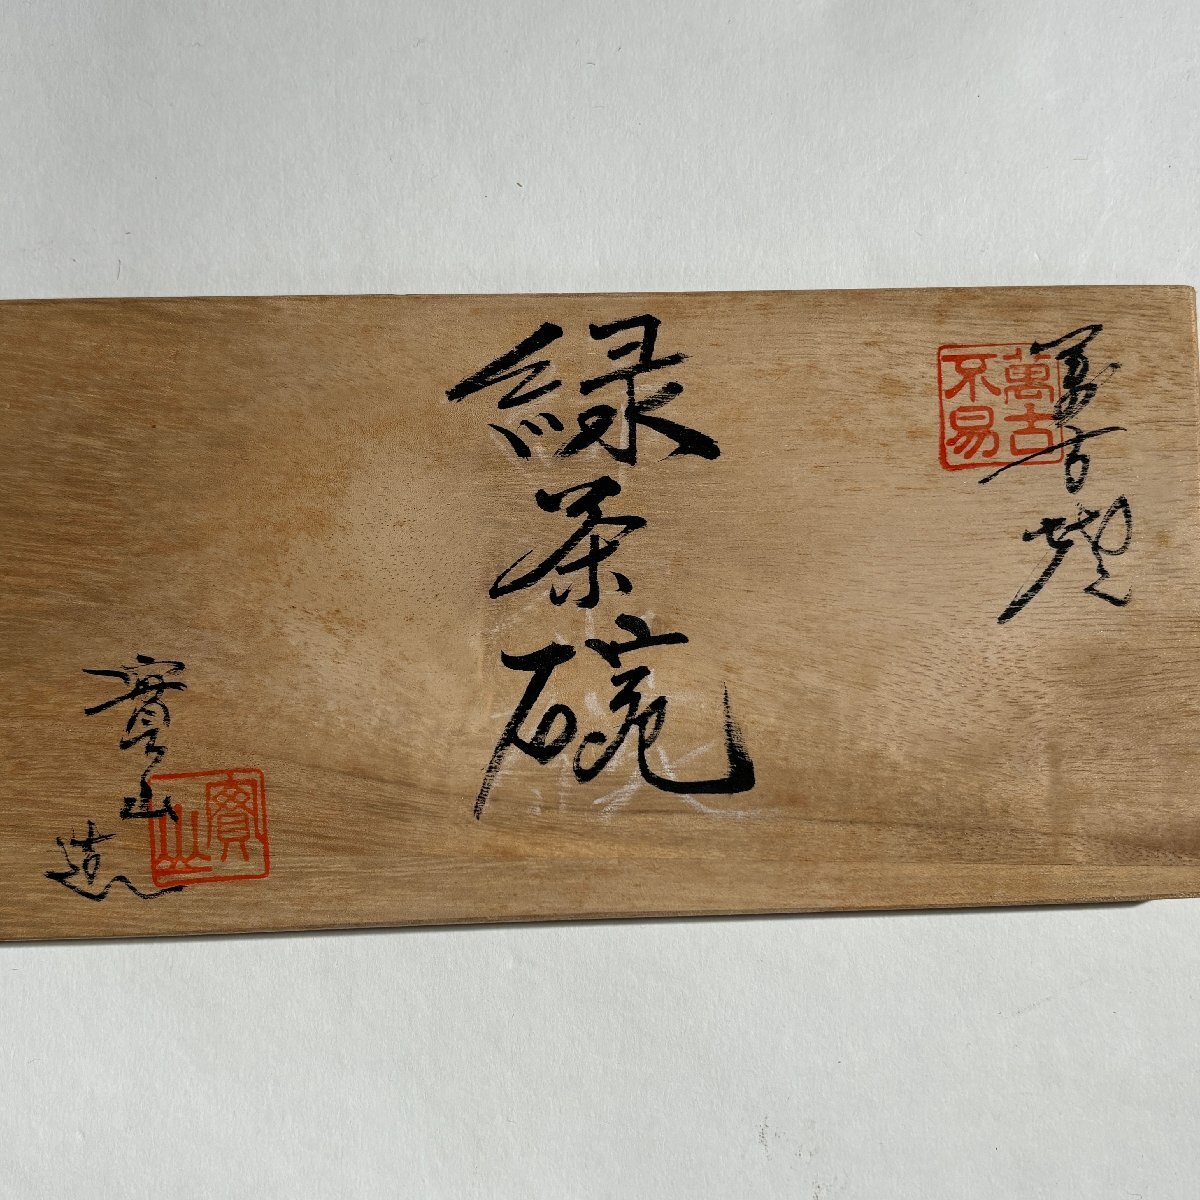 萬古焼
萬古
不易
緑茶碗
實山造
實山